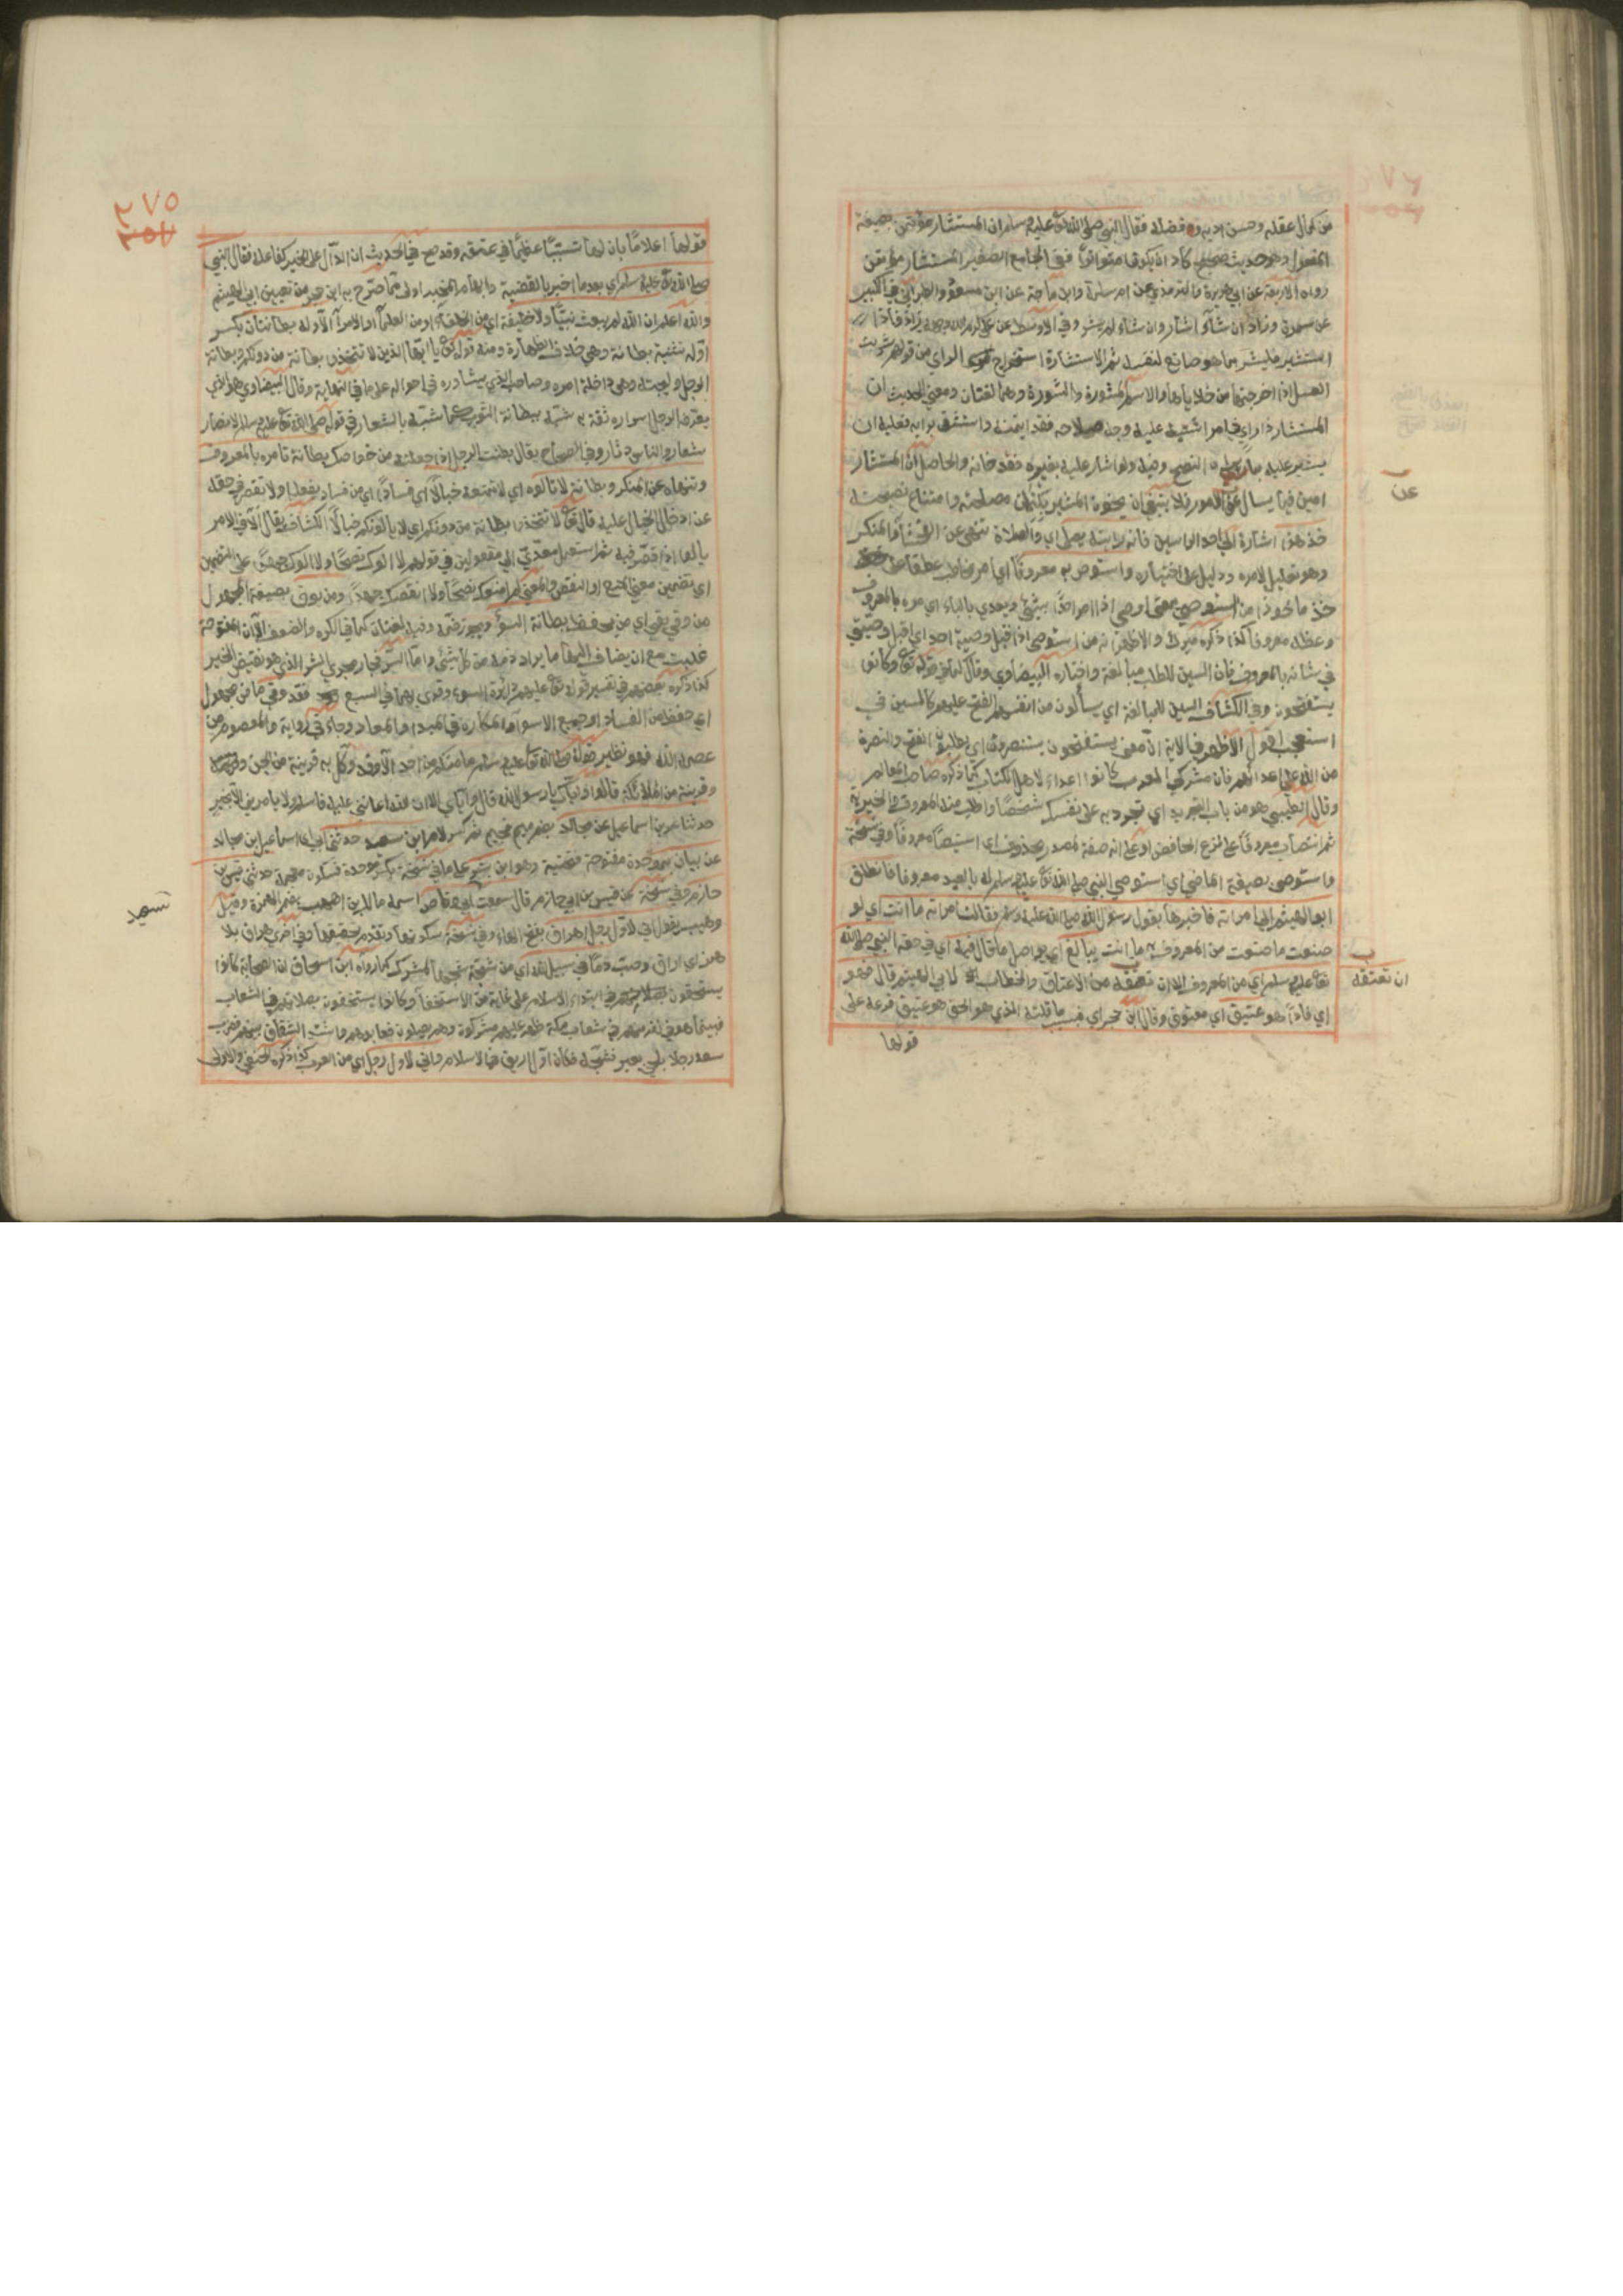 من كمال عقله وحسن ادبه و فضله فقال النبي صلى الله تع عليه وسلم ان المستشار مؤتمن بصيغة
المفعول وهو حديث صحيح كاد ان يكون متواترا ففي الجامع الصغير المستشار مؤتمن
رواه الاربعة عن ابي هريرة والترمذي عن ام سلمة وابن ماجة عن ابن مسعود والطبراني في الكبير
عن سمرة وزاد ان شاء اشار وان شاء لم يشر وفي الاوسط عن علي كرم الله وجهه وزاد فاذا
استشير فليشر بما هو صانع لنفسه ثم الاستشارة استخراج الراي من قولهم شرت
العسل اذا اخرجتها من خلاياها والاسم المشورة والمشورة وهما لغتان ومعنى الحديث ان
المستشار ذا راي في امر اشتبه عليه وجه صلاحه فقد ايتمنه واستشفى برايه فعليه ان
يشير عليه بما يرى النصح فيه ولو اشار عليه بغيره فقد خانه والحاصل ان المستشار
امين فيما يسال عن الامور فلا ينبغي ان يخون المستشير بكتمان مصلحته وامتناع نصيحته
خذ هذا اشارة الى احد الراسين فانه رايته يصلي اي والصلاة تنهى عن الفحشاء والمنكر
وهو تعليل لامره ودليل على اختياره واستوص به معروفا اي امر مخاطب عطفا على
خذ ماخوذ من استوصى بمعنى اوصى اذا امر احدا بشئ ويعدى بالباء اي مره بالمعروف
وعظه معروفا كذا ذكره ميرك والاظهر انه من استوصى اذا قبل وصية احد اي اقبل وصيتي
في شانه بالمعروف فان السين للطلب مبالغة واختاره البيضاوي وقال في قوله تع وكانوا
يستفتحون وفي الكشاف السين للمبالغة اي يسألون من انفسهم الفتح عليهم كالسين في
استعجب اقول الاظهر في الاية ان معنى يستفتحون يستنصرون اي يطلبون الفتح والنصرة
من الله على اعدائهم فان مشركي العرب كانوا اعداء لاهل الكتاب كما ذكره صاحب المعالم
وقال الطيبي هو من باب التجريد اي تجرد به على نفسك شخصا واطلب منه المعروف والخيرية
ثم انتصاب معروفا على نزع الخافض او على انه صفة لمصدر محذوف اي استيصاء معروفا وفي نسخة
واستوصى بصيغة الماضي اي استوصى النبي صلى الله تع عليه وسلم له بالعبد معروفا فانطلق
ابو الهيثم الى امراته فاخبرها بقول رسول الله صلى الله عليه وسلم فقالت امراته ما انت اي لو
صنعت ما صنعت من المعروف به ما انت ببالغ اي بواصل ما قال فيه اي في حقه النبي صلى الله
تع عليه وسلم اي من المعروف الا ان تعتقه من الاعتاق والخطاب لابي الهيثم قال فهو
اي فاذا هو عتيق اي معتوق وقال ابن حجر اي فبسبب ما قلته الذي هو الحق هو عتيق فرعه على
قولها
عن
ب
ان تعتقه
٢٧٥
قولها اعلاما بان لها تسببا عظيما في عتقه وقد صح في الحديث ان الدال على الخير كفاعله فقال النبي
صلى الله تع عليه وسلم اي بعد ما اخبر بالقضية وابهام المخبر اولى مما صرح به ابن حجر من تعيين ابي الهيثم
والله اعلم ان الله لم يبعث نبيا ولا خليفة اي من الخلفاء او من العلماء او الامراء الا وله بطانتان بكسر
اوله تثنية بطانة وهي خلاف الظهارة ومنه قوله تع يا ايها الذين لا تتخذوا بطانة من دونكم وبطانة
الرجل وليجته وهي داخلة امره وصاحبه الذي يشاوره في احواله على ما في النهاية وقال البيضاوي هو الذي
يعرفه الرجل اسراره ثقة به شبه ببطانة الثوب كما شبه بالشعار في قوله صلى الله تع عليه وسلم الانصار
شعار والناس دثار وفي الصحاح يقال بطنت الرجل اذا جعلته من خواصك بطانة تامره بالمعروف
وتنهاه عن المنكر وبطانة لا تالوه اي لا تمنعه خبالا اي فسادا اي من فساد يفعله او لا تقصر في حقه
عن ادخال الخبال عليه قال تع لا تتخذوا بطانة من دونكم اي لا يالونكم خبالا الكشاف يقال الا في الامر
يالو اذا قصر فيه ثم استعمل معدى الى مفعولين في قولهم لا الوك نصحا ولا الوك جهدا على التضمين
اي تضمين معنى المنع او النقص والمعنى لا امنعك نصحا ولا انقصك جهدا ومن يوق بصيغة المجهول
من وقى يقي اي من يحفظ بطانة السؤ ويجوز ضمه وفيه لغتان كما في الكره والضعف الا ان المفتوحة
غلبت مع ان يضاف اليها ما يراد ذمه من كل شئ واما السوء فجار مجرى الشر الذي هو نقيض الخير
كذا ذكره بعضهم في تفسير قوله تع عليهم دائرة السوء وقرئ بهما في السبع فقد وقي ماض مجهول
اي حفظ من الفساد او جميع الاسواء والمكاره في المبدا والمعاد وجاء في رواية والمعصوم من
عصمه الله فهو نظير قوله صلى الله تع عليه وسلم ما منكم من احد الا وقد وكل به قرينه من الجن
وقرينه من الملائكة قالوا واياك يا رسول الله قال واياي الا ان الله اعانني عليه فاسلم ولا يامرني الا بخير
حدثنا عمر بن اسماعيل عن مجالد بضم ميم فجيم ثم كسر لام ابن سعيد حدثني ابي اي اسماعيل بن مجالد
عن بيان بموحدة مفتوحة فتحتية وهو ابن بشر على ما في نسخة بكسر موحدة فسكون معجمة حدثني قيس بن
حازم وفي نسخة عن قيس بن ابي حازم قال سمعت ابي وقاص اسمه مالك بن اهيب بضم الهمزة وقيل
وهيب يقول اني لاول رجل اهراق بفتح الهاء وفي نسخة بسكونها وتقدم تحقيقها وفي اخرى هراق بلا
همز اي اراق وصب دما في سبيل الله اي من شجة شجها لمشرك كما رواه ابن اسحاق ان الصحابة كانوا
يستخفون بصلاتهم في ابتداء الاسلام على غاية من الاستخفاء وكانوا يستخفون بصلاتهم في الشعاب
فبينما هو في نفر منهم في شعاب مكة ظهر عليهم مشركون وهم يصلون فعابوهم واشتد الشقاق بينهم فضرب
سعد رجلا بلحي بعير فشجه فكان اول دم اريق في الاسلام واني لاول رجل اي من العرب كذا ذكره الحنفي والاولى
سعد